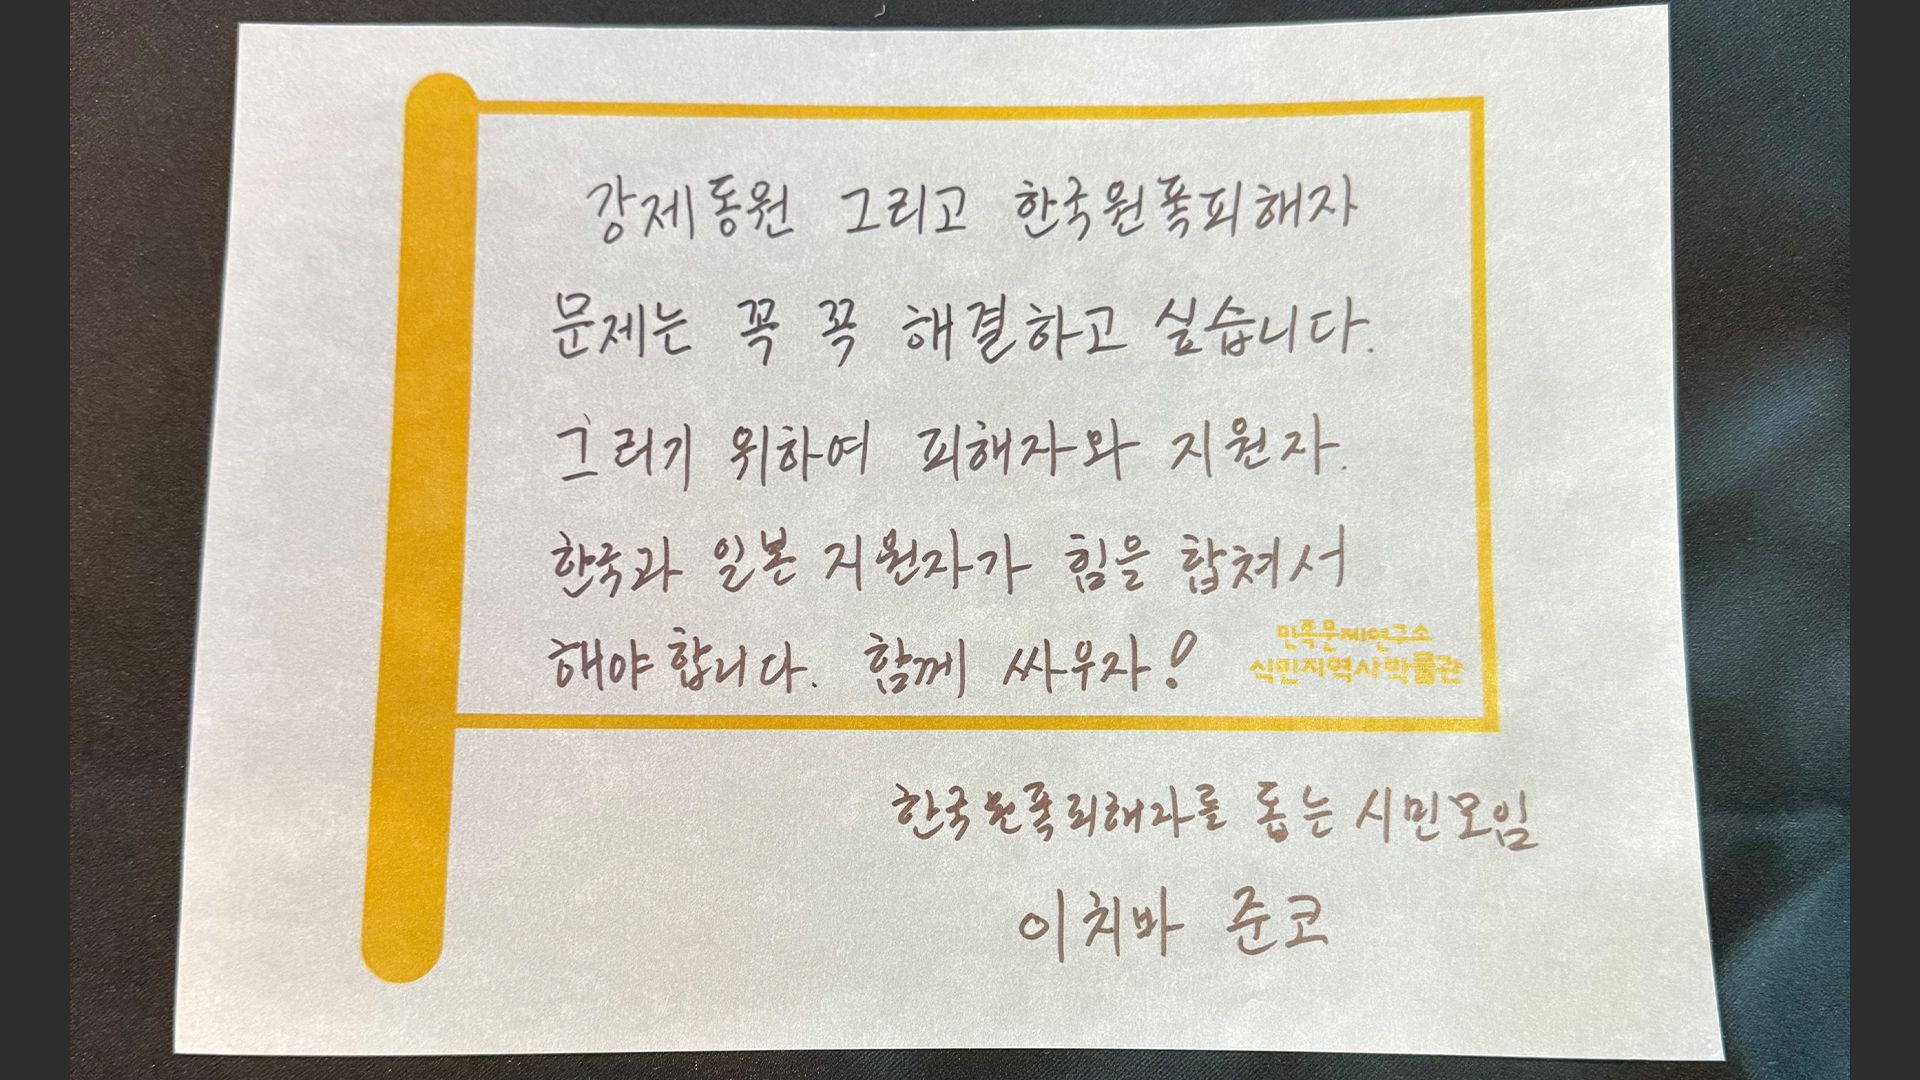 강제동원 그리고 한국원폭피해자
문제는 꼭 꼭 해결하고 싶습니다.
그러기 위하여 피해자와 지원자.
한국과 일본 지원자가 힘을 합쳐서
해야합니다. 함께 싸우자!
민족문제연구소
식민지역사박물관
한국원폭피해자를 돕는 시민모임
이치바 준코